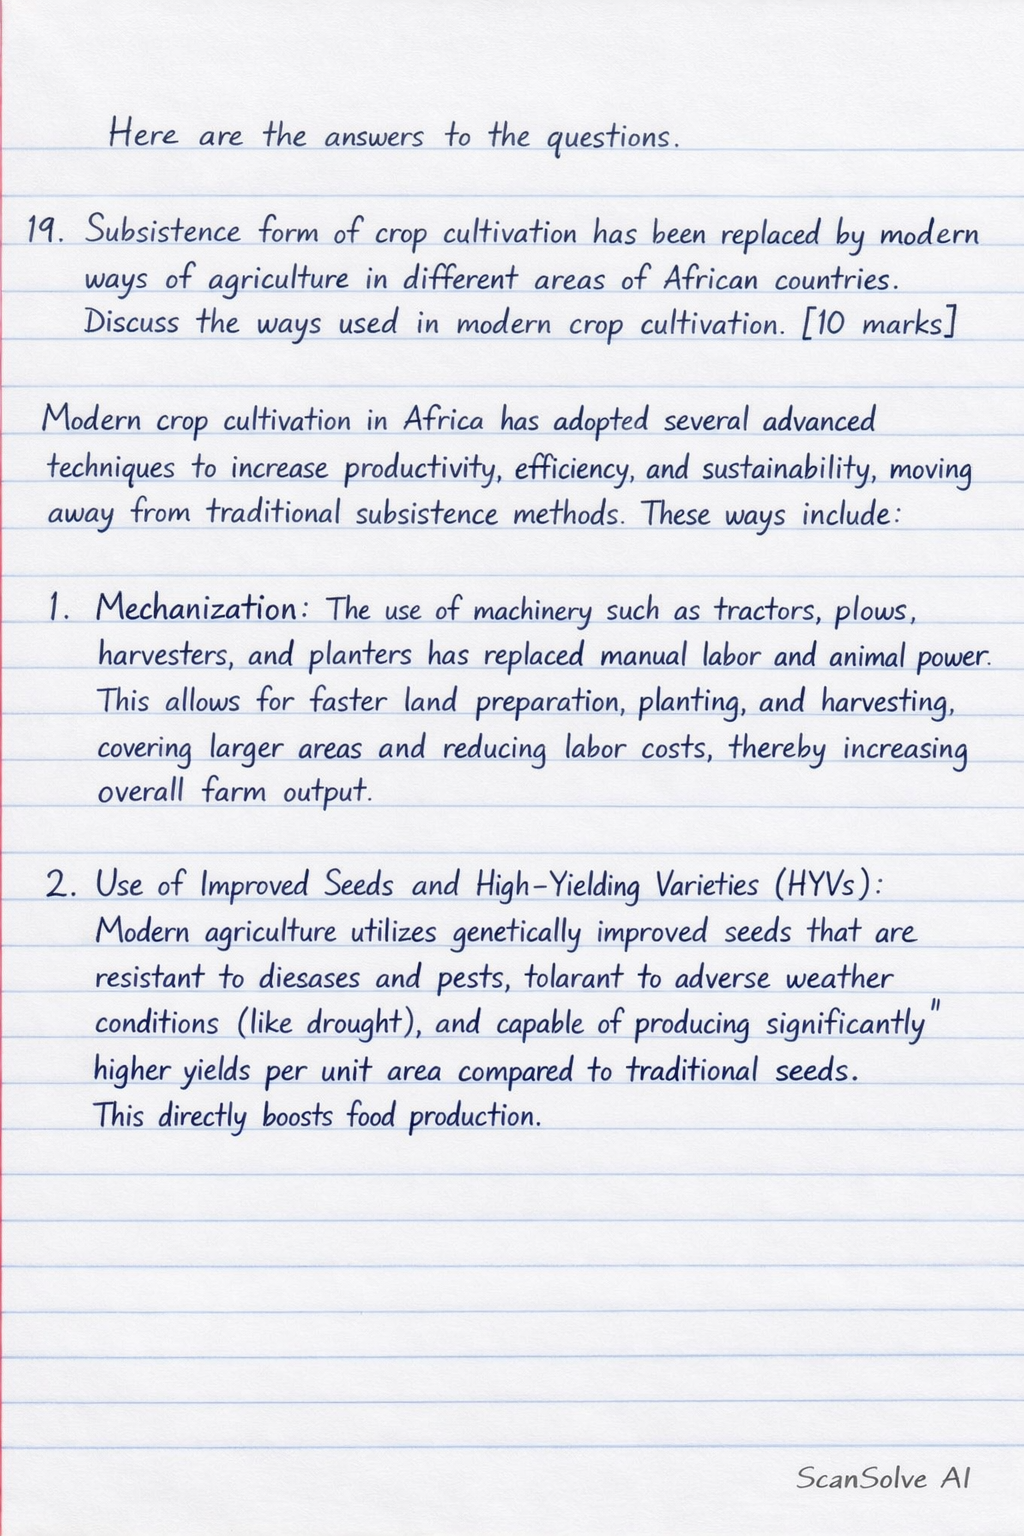 Here are the answers to the questions.
19. Subsistence form of crop cultivation has been replaced by modern
ways of agriculture in different areas of African countries.
Discuss the ways used in modern crop cultivation. [10 marks]
Modern crop cultivation in Africa has adopted several advanced
techniques to increase productivity, efficiency, and sustainability, moving
away from traditional subsistence methods. These ways include:
1. Mechanization: The use of machinery such as tractors, plows,
harvesters, and planters has replaced manual labor and animal power.
This allows for faster land preparation, planting, and harvesting,
covering larger areas and reducing labor costs, thereby increasing
overall farm output.
2. Use of Improved Seeds and High-Yielding Varieties (HYVs):
Modern agriculture utilizes genetically improved seeds that are
resistant to diesases and pests, tolarant to adverse weather
conditions (like drought), and capable of producing significantly"
higher yields per unit area compared to traditional seeds.
This directly boosts food production.
ScanSolve AI